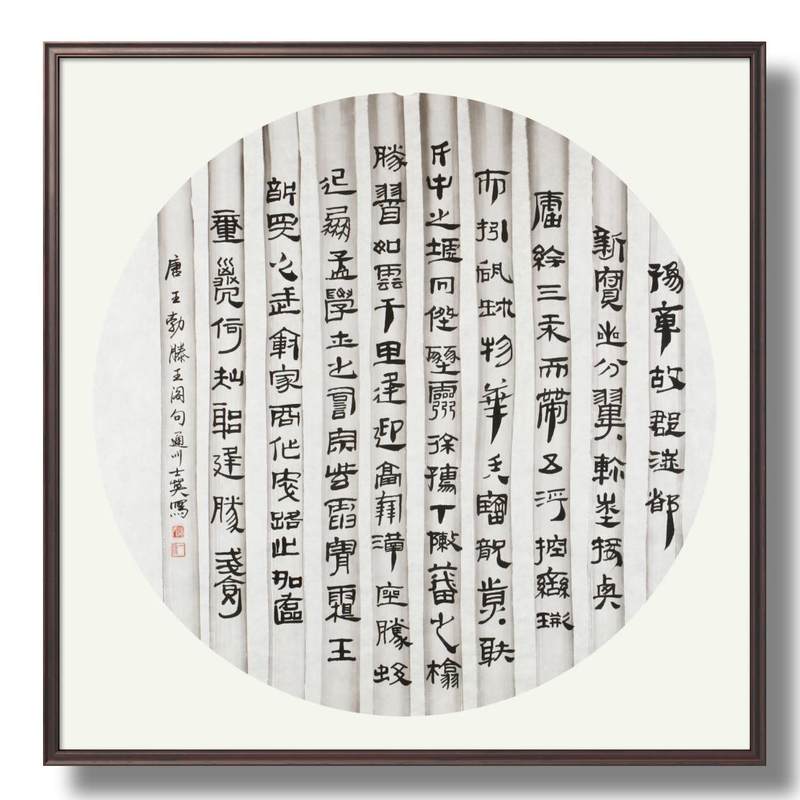 豫章故郡洪都
新府星分翼軫地接衡
廬襟三江而帶五湖控蠻荊
而引甌越物華天寶龍光射
斗牛之墟人傑地靈徐孺下陳蕃之榻
勝友如雲千里逢迎高朋滿座騰蛟
起鳳孟學士之詞宗紫電青霜王
將軍之武庫家君作宰路出名區
童子何知躬逢勝餞
唐王勃滕王阁句通州士英寫